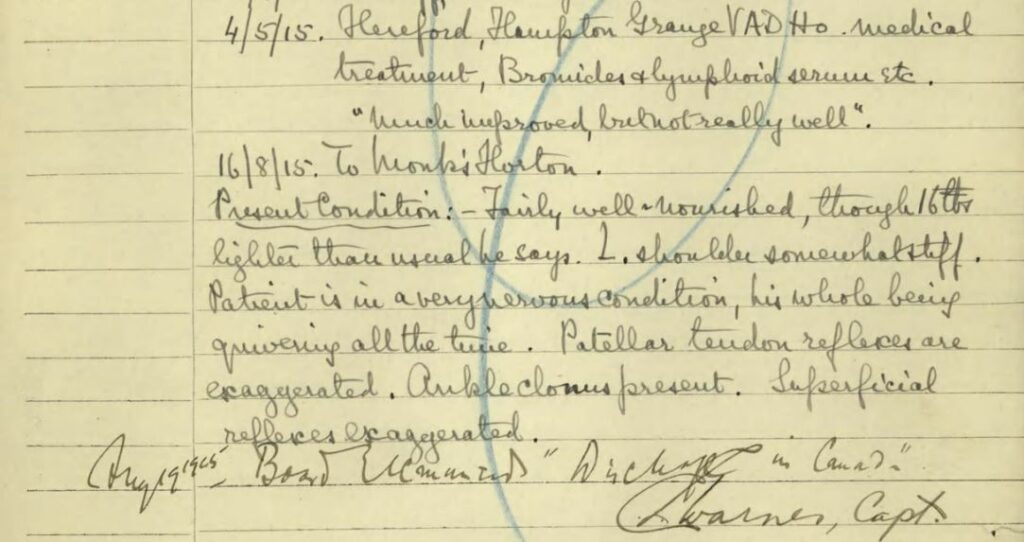 4/5/15. Hereford, Hampton Grange VAD Ho. medical
treatment, Bromides & lymphoid serum etc.
"Much improved, but not really well".
16/8/15. To Monks Horton.
Present Condition:- Fairly well-nourished, though 16 lbs
lighter than usual he says. L. shoulder somewhat stiff.
Patient is in a very nervous condition, his whole being
quivering all the time. Patellar tendon reflexes are
exaggerated. Ankle clonus present. Superficial
reflexes exaggerated.
Aug 19 1915 - Board "Discharge in Canada"
Capt.